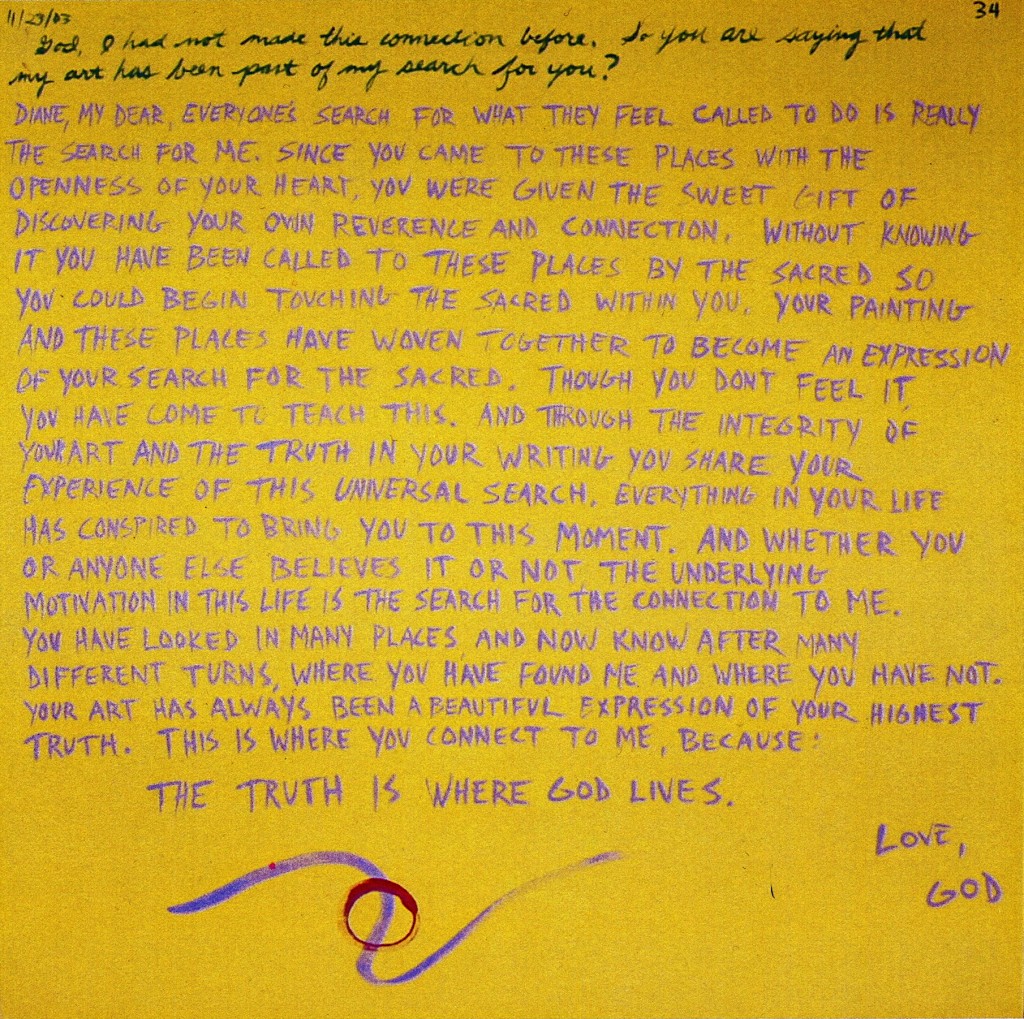 11/23/03
34
God, I had not made this connection before. So you are saying that
my art has been part of my search for you?
DIANE, MY DEAR, EVERYONE'S SEARCH FOR WHAT THEY FEEL CALLED TO DO IS REALLY
THE SEARCH FOR ME. SINCE YOU CAME TO THESE PLACES WITH THE
OPENNESS OF YOUR HEART, YOU WERE GIVEN THE SWEET GIFT OF
DISCOVERING YOUR OWN REVERENCE AND CONNECTION. WITHOUT KNOWING
IT YOU HAVE BEEN CALLED TO THESE PLACES BY THE SACRED SO
YOU COULD BEGIN TOUCHING THE SACRED WITHIN YOU. YOUR PAINTING
AND THESE PLACES HAVE WOVEN TOGETHER TO BECOME AN EXPRESSION
OF YOUR SEARCH FOR THE SACRED. THOUGH YOU DONT FEEL IT,
YOU HAVE COME TO TEACH THIS. AND THROUGH THE INTEGRITY OF
YOUR ART AND THE TRUTH IN YOUR WRITING YOU SHARE YOUR
EXPERIENCE OF THIS UNIVERSAL SEARCH. EVERYTHING IN YOUR LIFE
HAS CONSPIRED TO BRING YOU TO THIS MOMENT. AND WHETHER YOU
OR ANYONE ELSE BELIEVES IT OR NOT, THE UNDERLYING
MOTIVATION IN THIS LIFE IS THE SEARCH FOR THE CONNECTION TO ME.
YOU HAVE LOOKED IN MANY PLACES, AND NOW KNOW AFTER MANY
DIFFERENT TURNS, WHERE YOU HAVE FOUND ME AND WHERE YOU HAVE NOT.
YOUR ART HAS ALWAYS BEEN A BEAUTIFUL EXPRESSION OF YOUR HIGHEST
TRUTH. THIS IS WHERE YOU CONNECT TO ME, BECAUSE:
THE TRUTH IS WHERE GOD LIVES.
LOVE,
GOD